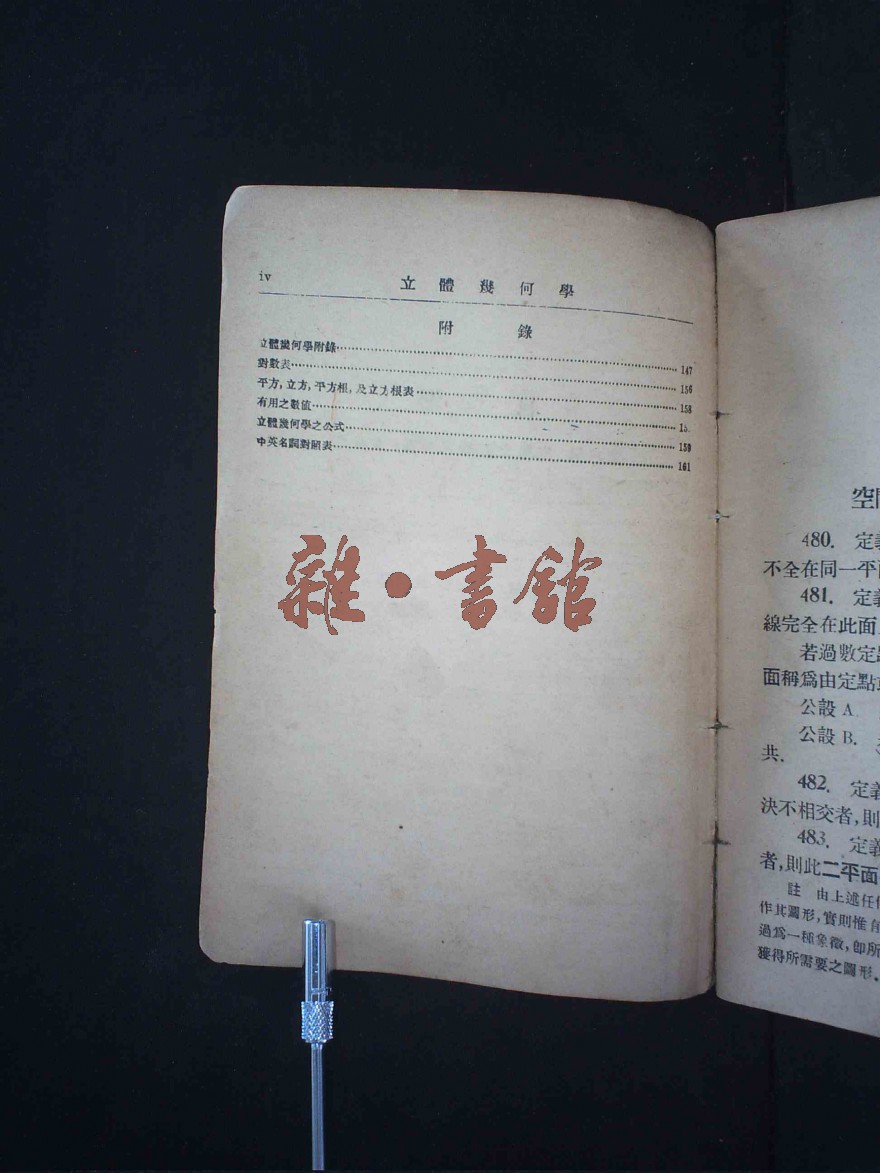 iv 立體幾何學
附錄
立體幾何學附錄 147
對數表 156
平方,立方,平方根,及立方根表 158
有用之數值 15
立體幾何學之公式 159
中英名詞對照表 161
雜·書館
空
480. 定義
不全在同一平
481. 定
線完全在此面
若過數定
面稱爲由定點
公設 A
公設 B.
共.
482. 定
決不相交者,則
483. 定義
者,則此二平面
註 由上述任
作其圖形,實則惟
過爲一種象徵,卽所
獲得所需要之圖形.